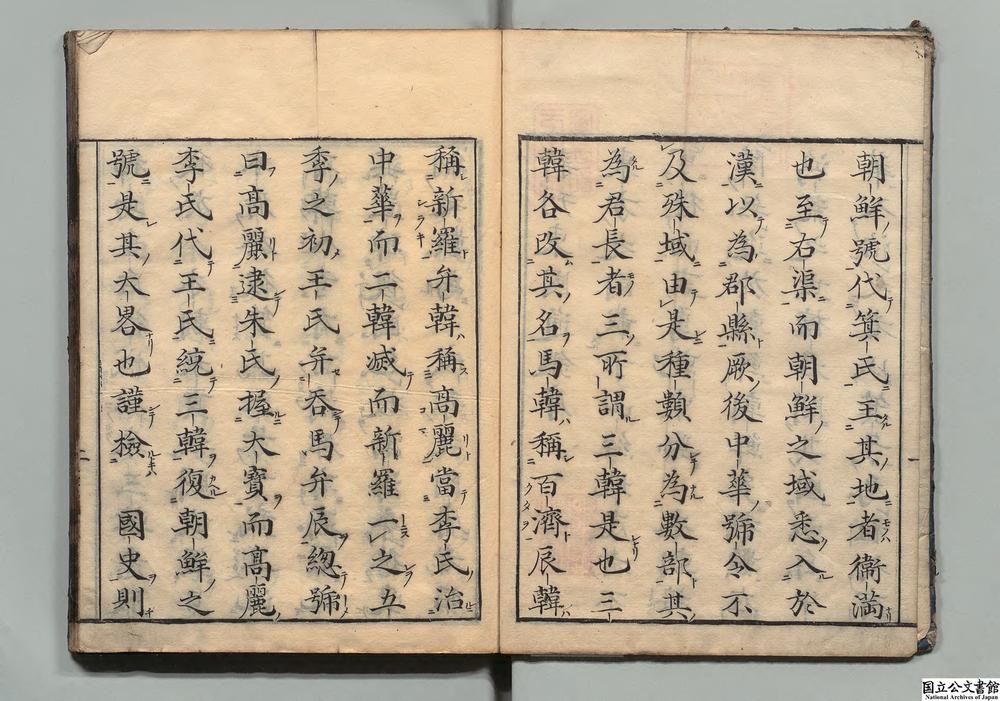 朝鮮號代箕氏王其地者衞滿
也至右渠而朝鮮之域悉入於
漢以為郡縣厥後中華號令不
及殊域由是種類分為數部其
為君長者三所謂三韓是也三
韓各改其名馬韓稱百濟辰韓
稱新羅弁韓稱高麗當李氏治
中華而二韓滅而新羅一之五
季之初王氏弁吞馬弁辰總號
曰高麗逮朱氏握大寶而高麗
李氏代王氏統三韓復朝鮮之
號是其大畧也謹檢 國史則
国立公文書館
National Archives of Japan